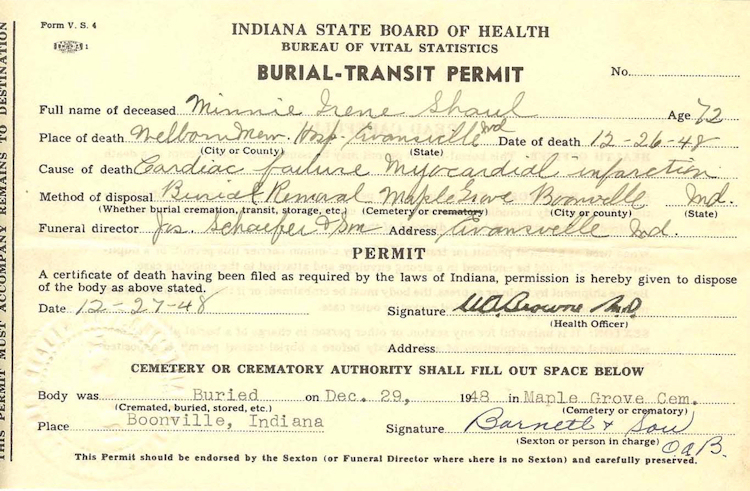 Form V. S. 4
INDIANA STATE BOARD OF HEALTH
BUREAU OF VITAL STATISTICS
BURIAL-TRANSIT PERMIT
No.
Full name of deceased Minnie Irene Shaul Age 72
Place of death Welborn Mem. Hosp. Evansville Ind Date of death 12-26-48
(City or County) (State)
Cause of death Cardiac failure Myocardial infarction
Method of disposal Burial & Removal Maple Grove Boonville Ind.
(Whether burial cremation, transit, storage, etc.) (Cemetery or crematory) (City or county) (State)
Funeral director Jos. Schaefer & Son Address Evansville Ind.
PERMIT
A certificate of death having been filed as required by the laws of Indiana, permission is hereby given to dispose
of the body as above stated.
Date 12-27-48 Signature W.A. Browne M.D.
(Health Officer)
Address
CEMETERY OR CREMATORY AUTHORITY SHALL FILL OUT SPACE BELOW
Body was Buried on Dec. 29, 1948 in Maple Grove Cem.
(Cremated, buried, stored, etc.) (Cemetery or crematory)
Place Boonville, Indiana Signature Barnett & Son
(Sexton or person in charge) O.a.B.
This Permit should be endorsed by the Sexton (or Funeral Director where there is no Sexton) and carefully preserved.
THIS PERMIT MUST ACCOMPANY REMAINS TO DESTINATION